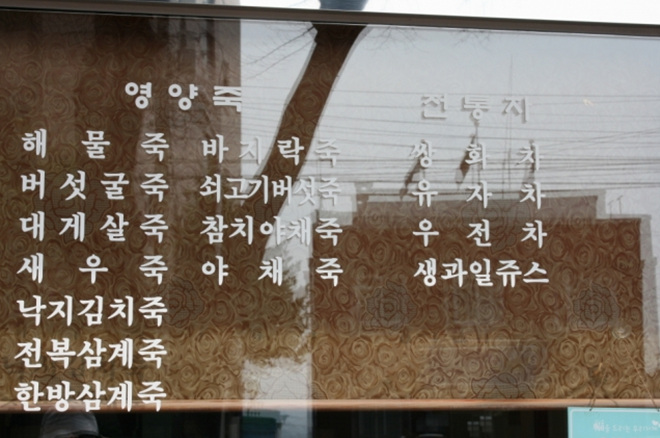 영양죽
해물죽
버섯굴죽
대게살죽
새우죽
낙지김치죽
전복삼계죽
한방삼계죽
바지락죽
쇠고기버섯죽
참치야채죽
야채죽
전통차
쌍화차
유자차
우전차
생과일쥬스